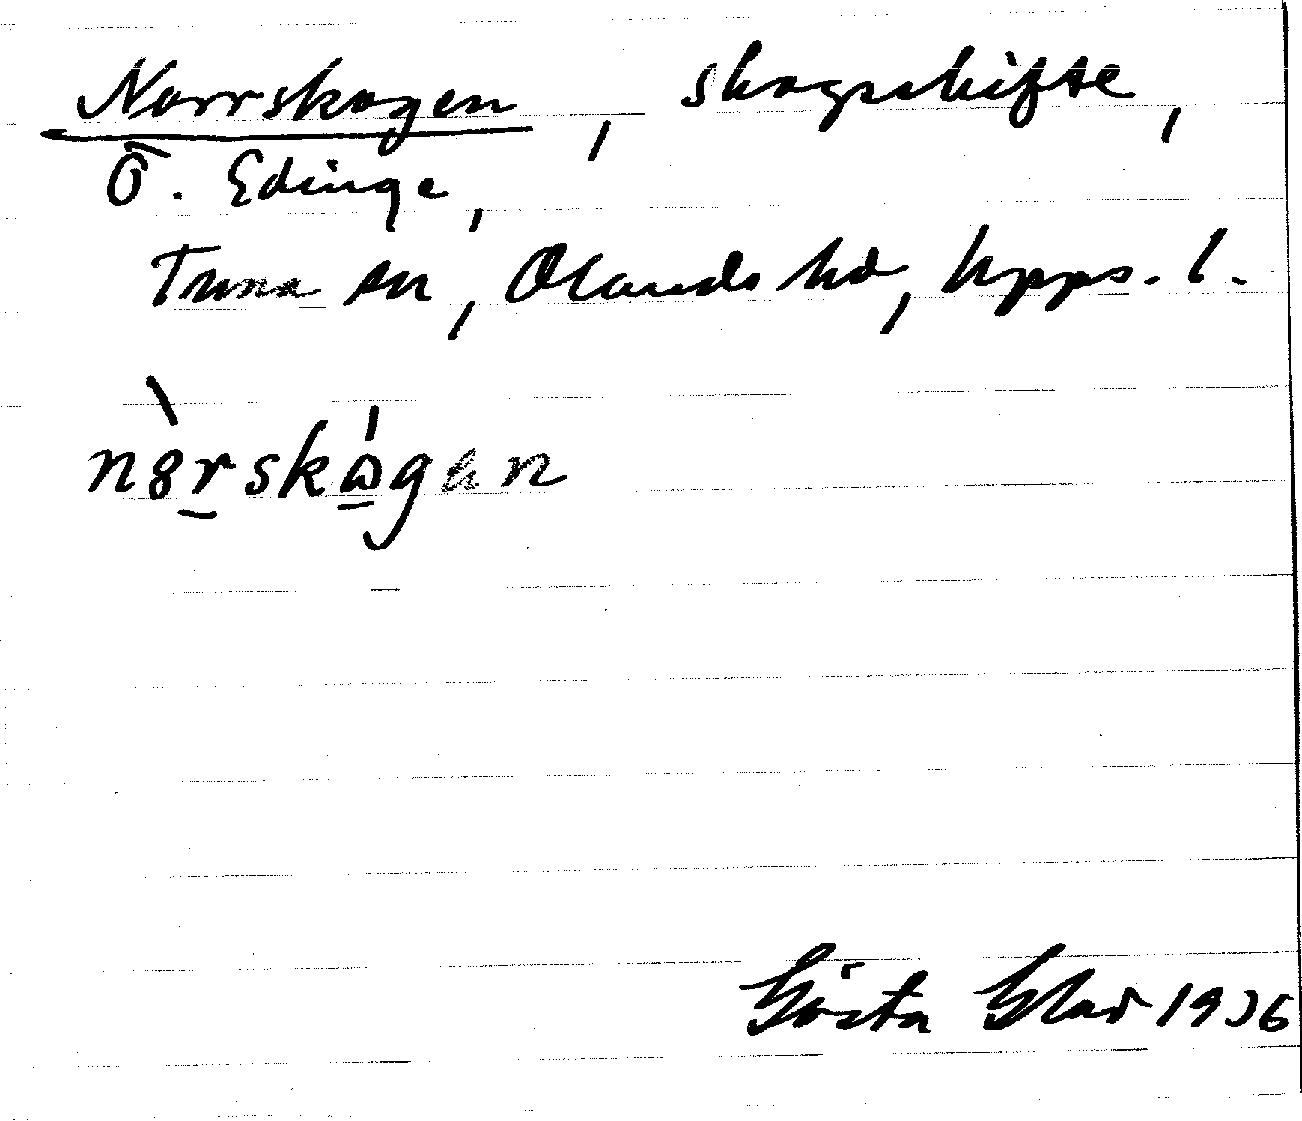 Norrskogen, skogsskifte,
Ö. Edinge,
Tuna sn, Olands hd, Upps. l.
nòrskógan
Gösta Glad 1936